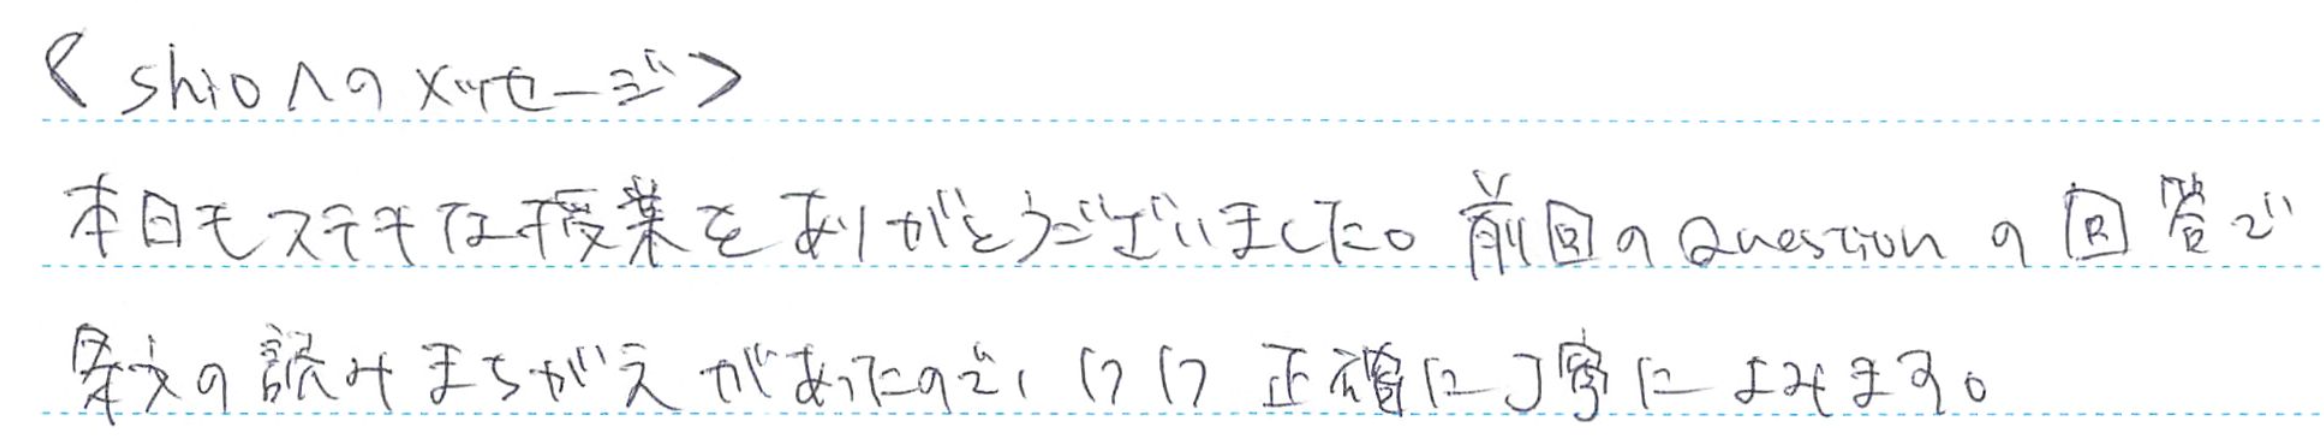 <shioへのメッセージ>
本日もステキな授業をありがとうございました。前回のQuestionの回答で
条文の読みまちがえがあったので、 正確に丁寧によみます。